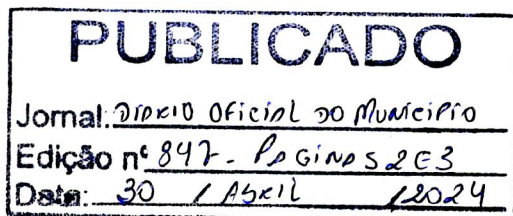 PUBLICADO
Jornal: DIARIO OFICIAL DO MUNICIPIO
Edição nº 847 - PAGINAS 2 E 3
Data: 30 / ABRIL / 2024